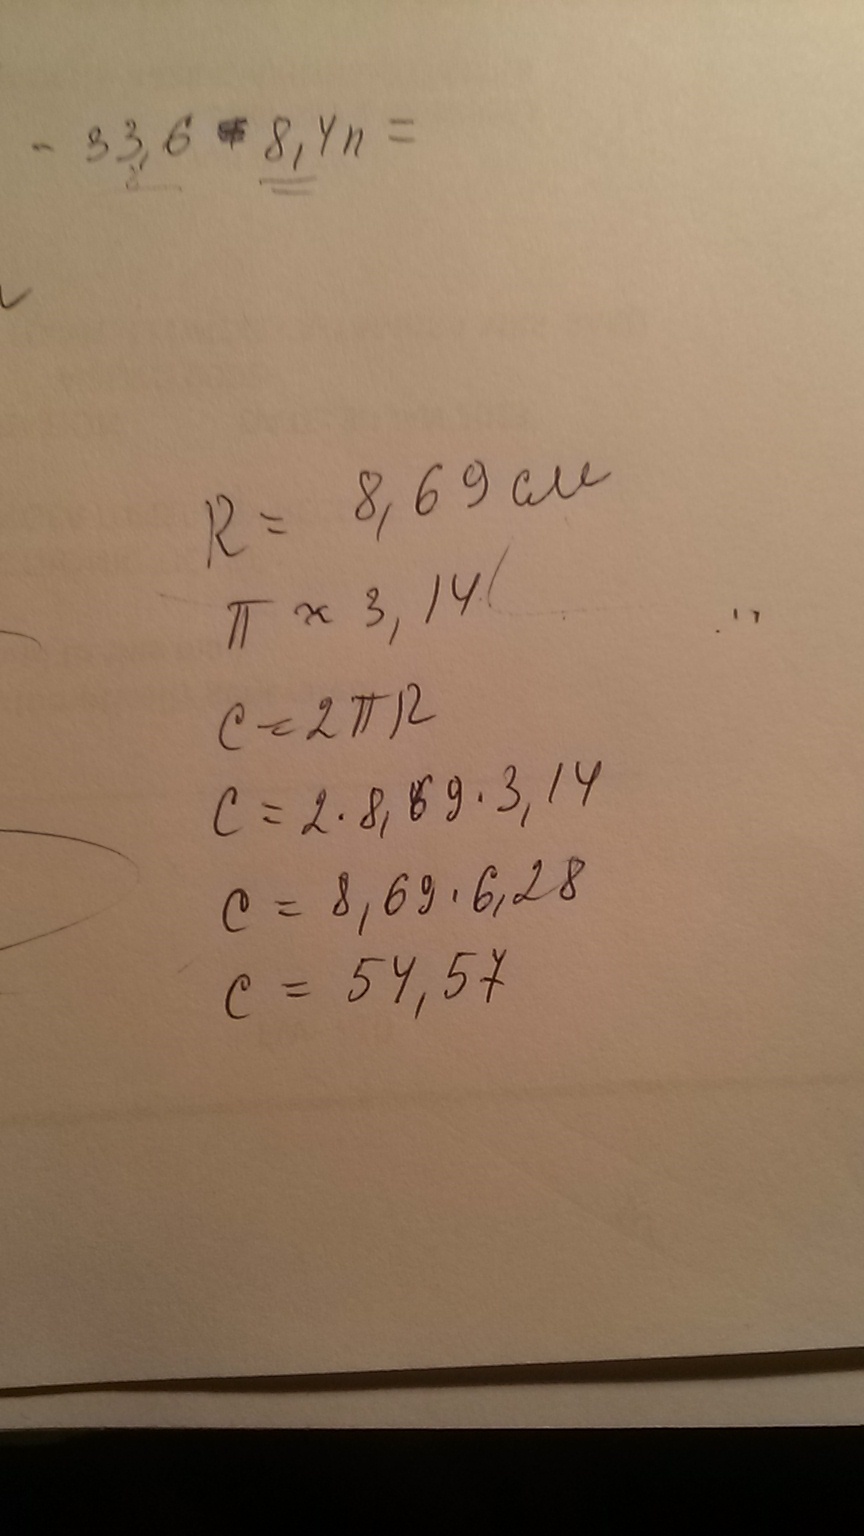 - 33,6 + 8,4n =
R = 8,69 см
π ≈ 3,14
C = 2πR
C = 2·8,69·3,14
C = 8,69·6,28
C = 54,57